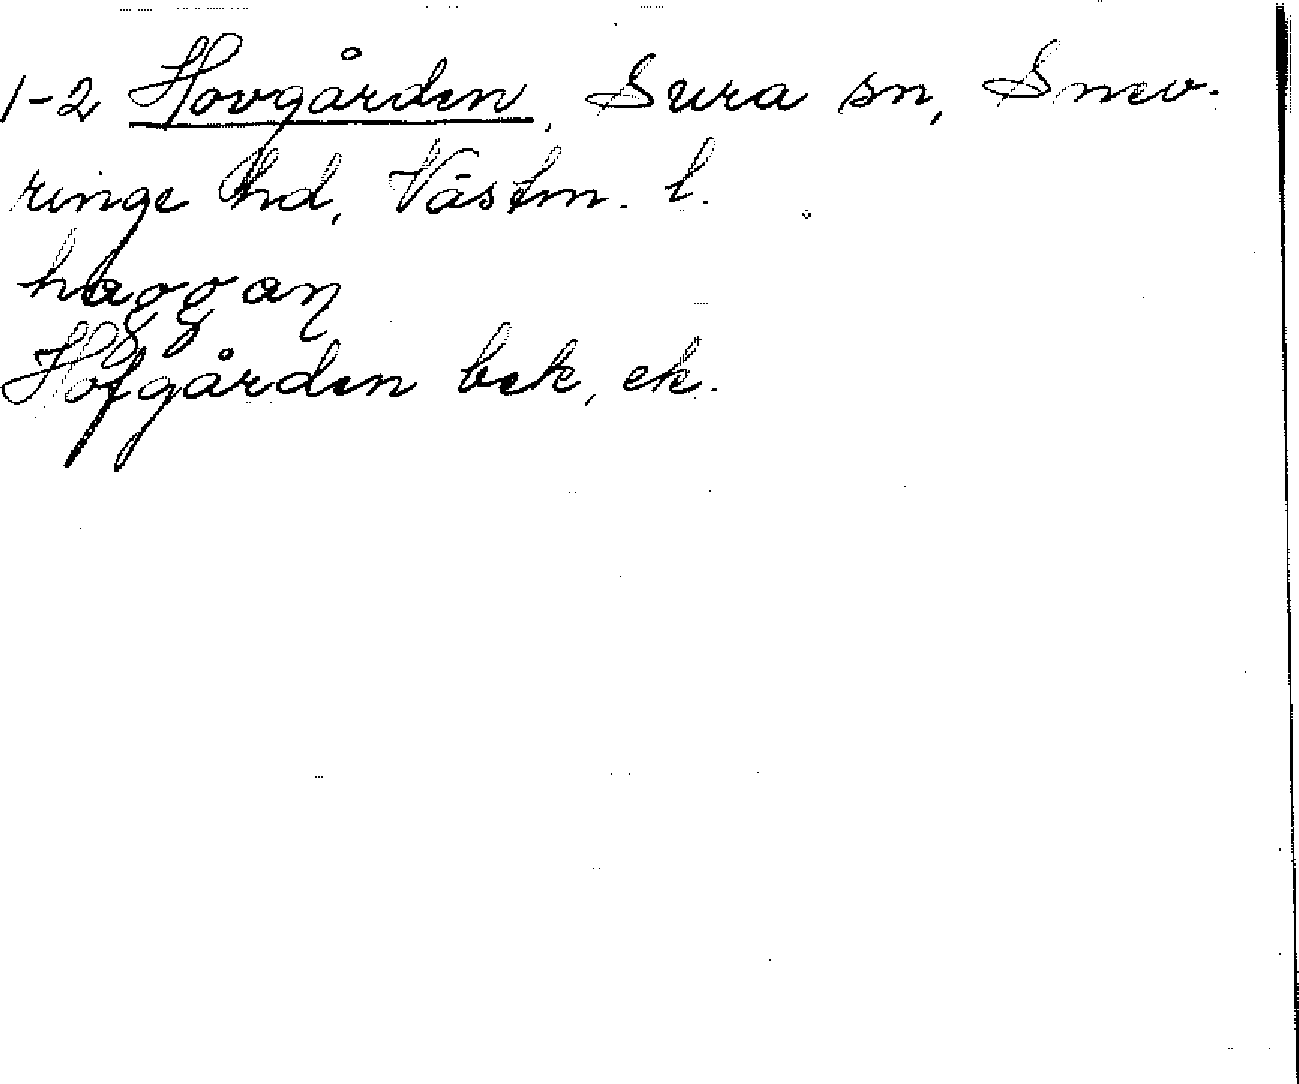 1-2 Hovgården, Sura sn, Snev-
ringe hd, Västm. l.
haggaŋ
Hofgården bek, ek.